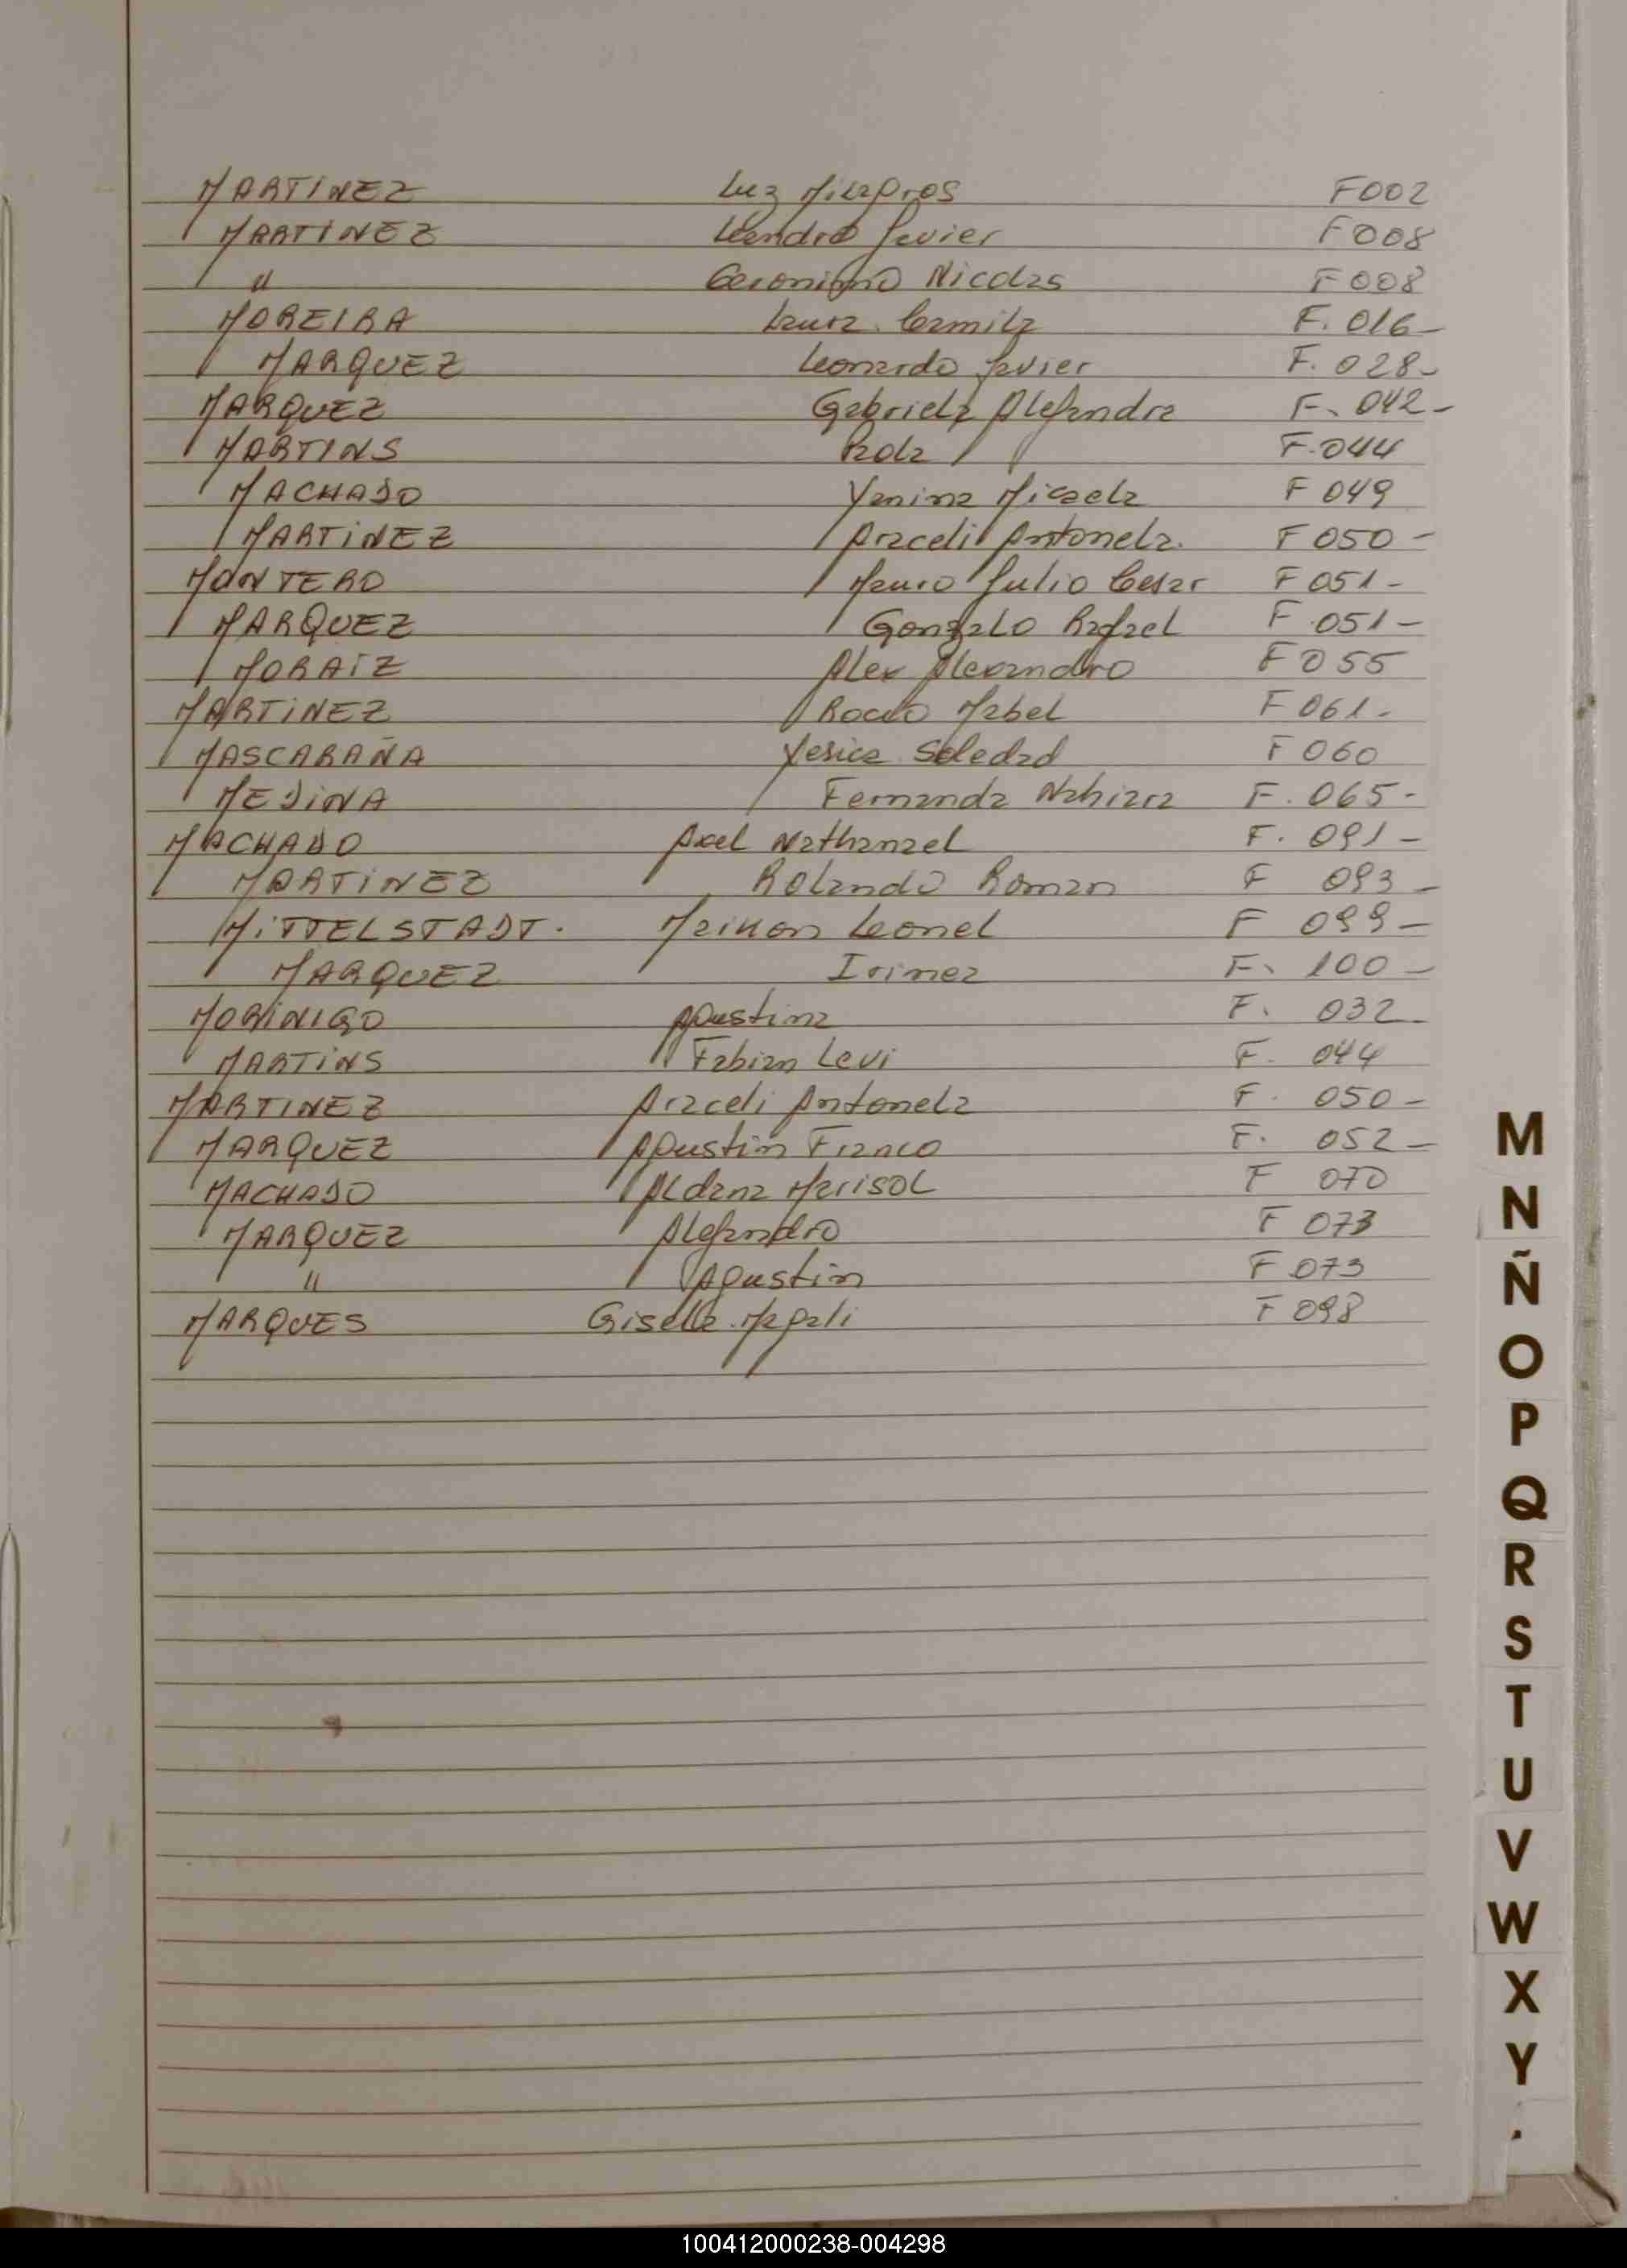 MARTINEZ Luz Milagros F002
MARTINEZ Leandro Javier F008
" Geronimo Nicolas F008
MOREIRA Laura Camila F. 016-
MARQUEZ Leonardo Javier F. 028-
MARQUEZ Gabriela Alejandra F. 042-
MARTINS F.044
MACHADO Yanina Micaela F 049
MARTINEZ Araceli Antonela. F 050 -
MONTERO Mauro Julio Cesar F 051-
MARQUEZ Gonzalo Rafael F 051-
MORAIZ Alex Alexandro F 055
MARTINEZ Rocio Mabel F 061.
MASCARAÑA Yesica Soledad F 060
MEDINA Fernanda Nahiara F. 065-
MACHADO Axel Nathanael F. 091-
MARTINEZ Rolando Roman F 093-
MITTELSTADT. Maikon Leonel F 099-
MARQUEZ Irinea F. 100-
MORINIGO Agustina F. 032-
MARTINS Fabian Levi F. 044
MARTINEZ Araceli Antonela F. 050-
MARQUEZ Agustin Franco F. 052-
MACHADO Aldana Marisol F 070
MARQUEZ Alejandro F 073
" Agustin F 073
MARQUES Gisella Magali F 098
M
N
Ñ
O
P
Q
R
S
T
U
V
W
X
Y
100412000238-004298